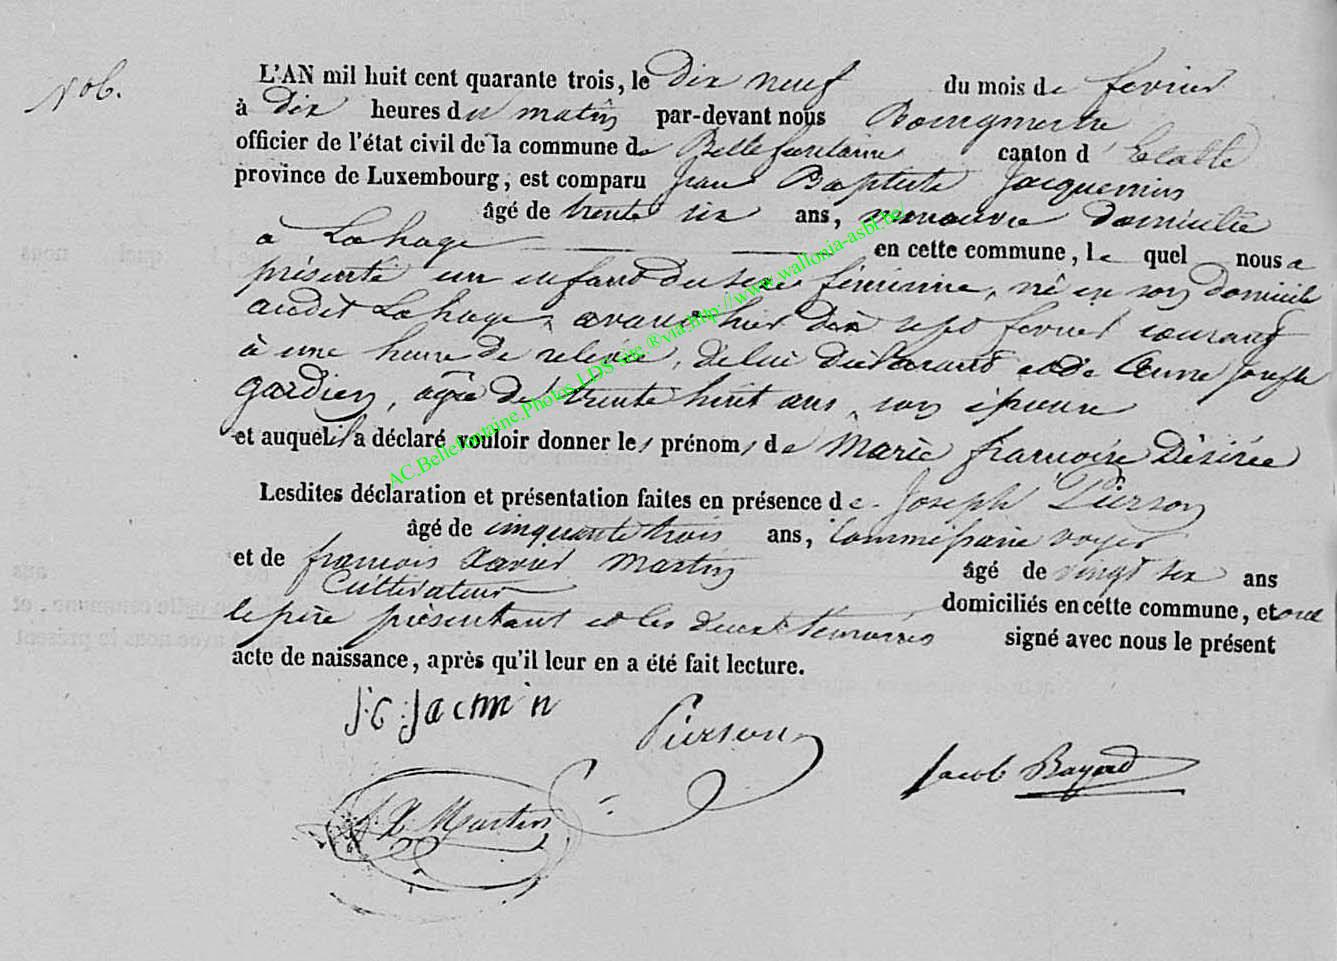 No 6.
L'AN mil huit cent quarante trois, le Dix neuf du mois de fevrier
à Dix heures du matin par-devant nous Bourgmestre
officier de l'état civil de la commune de Bellefontaine canton d'Etalle
province de Luxembourg, est comparu Jean Baptiste Jacquemin
âgé de trente six ans, manœuvre domicilié
à Lahage en cette commune, lequel nous a
présenté un enfant du sexe féminin, né en son domicile
audit Lahage, avant hier dix sept fevrier courant
à une heure de relevée, de lui déclarant et de Anne Joseph
gardien, agée de trente huit ans, son épouse
et auquel il a déclaré vouloir donner les prénoms de Marie françoise Désirée
Lesdites déclaration et présentation faites en présence de Joseph Pierson
âgé de cinquante trois ans, Commissaire voyer
et de françois Xavier Martin âgé de vingt six ans
Cultivateur domiciliés en cette commune, et ont
le père présentant et les deux témoins signé avec nous le présent
acte de naissance, après qu'il leur en a été fait lecture.
Jacmin
Pierson
Jacob Bayard
f. X. Martin
AC.Bellefontaine.Photos.LDS site.®via.http://www.wallonia-asbl.be/